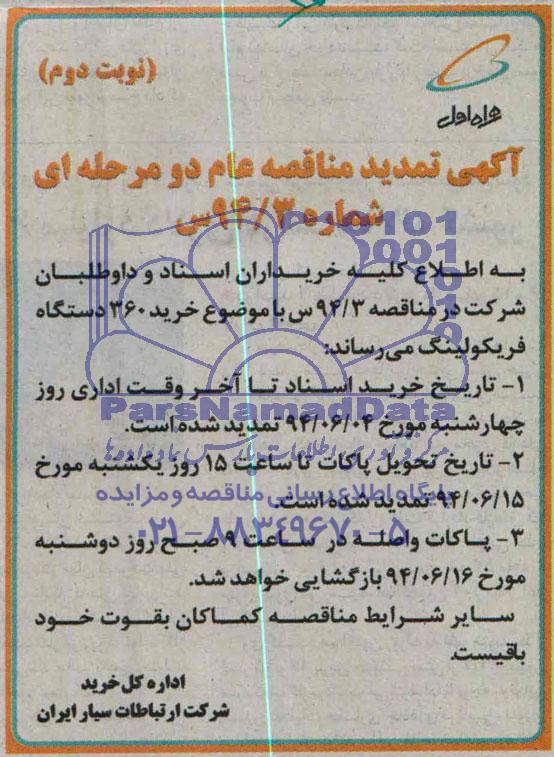 (نوبت دوم)
همراه اول
آگهی تمدید مناقصه عام دو مرحله ای
شماره ۹۴/۳س
به اطلاع کلیه خریداران اسناد و داوطلبان
شرکت در مناقصه ۹۴/۳ س با موضوع خرید ۳۶۰ دستگاه
فریکولینگ می‌رساند:
۱- تاریخ خرید اسناد تا آخر وقت اداری روز
چهارشنبه مورخ ۹۴/۰۶/۰۴ تمدید شده است.
۲- تاریخ تحویل پاکات تا ساعت ۱۵ روز یکشنبه مورخ
۹۴/۰۶/۱۵ تمدید شده است.
۳- پاکات واصله در ساعت ۹ صبح روز دوشنبه
مورخ ۹۴/۰۶/۱۶ بازگشایی خواهد شد.
سایر شرایط مناقصه کماکان بقوت خود
باقیست.
اداره کل خرید
شرکت ارتباطات سیار ایران
ParsNamadData
مرکز فرآوری اطلاعات پارس نماد داده‌ها
پایگاه اطلاع رسانی مناقصه و مزایده
۰۲۱-۸۸۳۴۹۶۷۰-۵